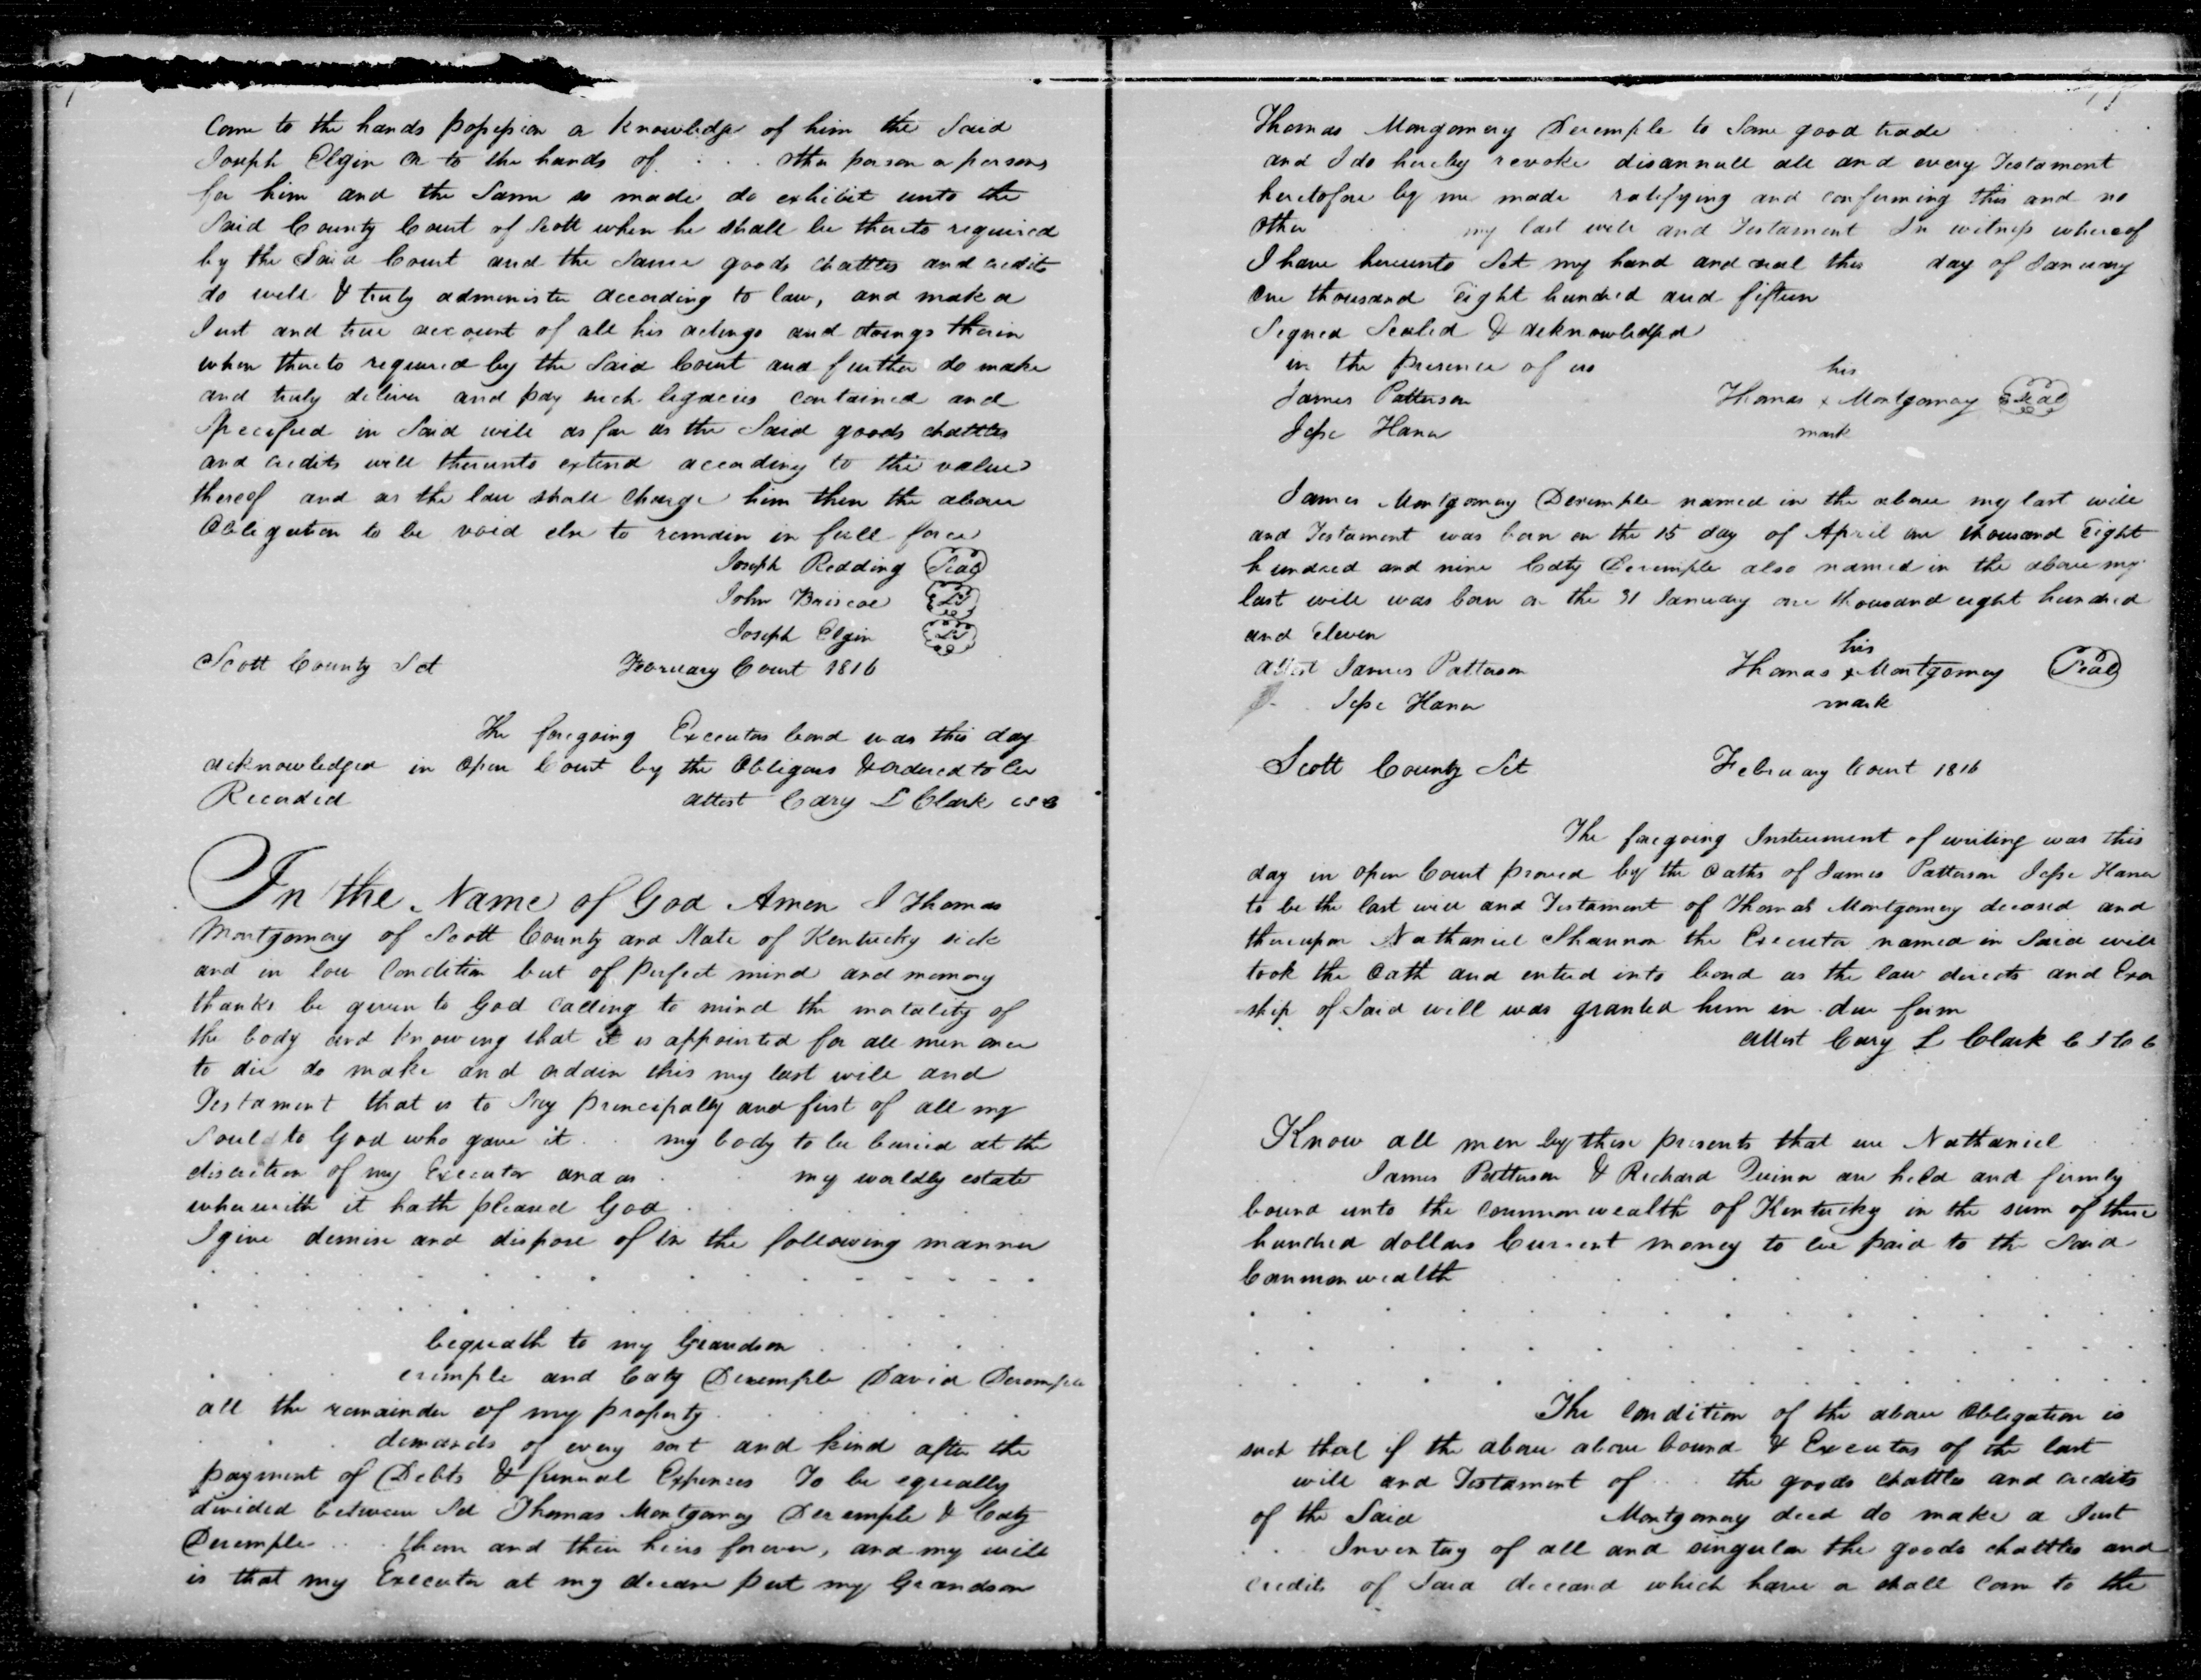 Come to the hands possession or knowledge of him the Said
Joseph Elgin or to the hands of . . . other person or persons
for him and the Same so made do exhibit unto the
Said County Court of Scott when he shall be thereto required
by the Said Court and the Same goods chattles and credits
do well & truly administer according to law, and make a
Just and true account of all his actings and doings therein
when thereto required by the Said Court and further do make
and truly deliver and pay such legacies contained and
Specified in Said will as far as the Said goods chattles
and credits will thereunto extend according to the value
thereof and as the law shall Charge him then the above
Obligation to be void else to remain in full force
Joseph Redding Seal
John Briscoe LS
Joseph Elgin LS
Scott County Sct February Court 1816
The foregoing Executors bond was this day
acknowledged in Open Court by the Obligors & ordered to be
Recorded attest Cary L Clark csc
In the Name of God Amen I Thomas
Montgomery of Scott County and State of Kentucky sick
and in low Condition but of Perfect mind and memory
thanks be given to God calling to mind the mortality of
the body and knowing that it is appointed for all men once
to die do make and ordain this my last will and
Testament that is to Say principally and first of all my
Soul to God who gave it . . my body to be buried at the
discretion of my Executor and as . . my worldly estate
wherewith it hath pleased God
I give demise and dispose of in the following manner
bequeath to my Grandson
erimple and Caty Derimple David Derimple
all the remainder of my property
demands of every sort and kind after the
payment of Debts & funeral Expenses To be equally
divided between Sd Thomas Montgomery Derimple & Caty
Derimple . . . them and their heirs forever, and my will
is that my Executor at my decease put my Grandson
Thomas Mongomery Derimple to Some good trade
and I do hereby revoke disannull all and every Testament
heretofore by me made ratifying and confirming this and no
other my last will and Testament In witness whereof
I have hereunto Set my hand and seal this day of January
One thousand Eight hundred and fifteen
Signed Sealed & acknowledged
in the presence of us his
James Patterson Thomas x Montgomery Seal
Jesse Hana mark
James Montgomery Derimple named in the above my last will
and Testament was born on the 15 day of April one thousand Eight
hundred and nine Caty Derimple also named in the above my
last will was born on the 31 January one thousand eight hundred
and Eleven his
attest James Patterson Thomas x Montgomery Seal
Jesse Hana mark
Scott County Sct February Court 1816
The foregoing Instrument of writing was this
day in Open Court proved by the Oaths of James Patterson Jesse Hana
to be the last will and Testament of Thomas Montgomery deceased and
thereupon Nathaniel Shannon the Executor named in Said will
took the Oath and entered into bond as the law directs and Exor
ship of Said will was granted him in due form
attest Cary L Clark C S C C
Know all men by these presents that we Nathaniel
James Patterson & Richard Quinn are held and firmly
bound unto the Commonwealth of Kentucky in the sum of three
hundred dollars Current money to be paid to the Said
Commonwealth
The Condition of the above Obligation is
such that if the above above bound & Executors of the last
will and Testament of . . the goods chattles and credits
of the Said Montgomery decd do make a Just
. . Inventory of all and singular the goods chattles and
credits of Said deceased which have or shall Come to the